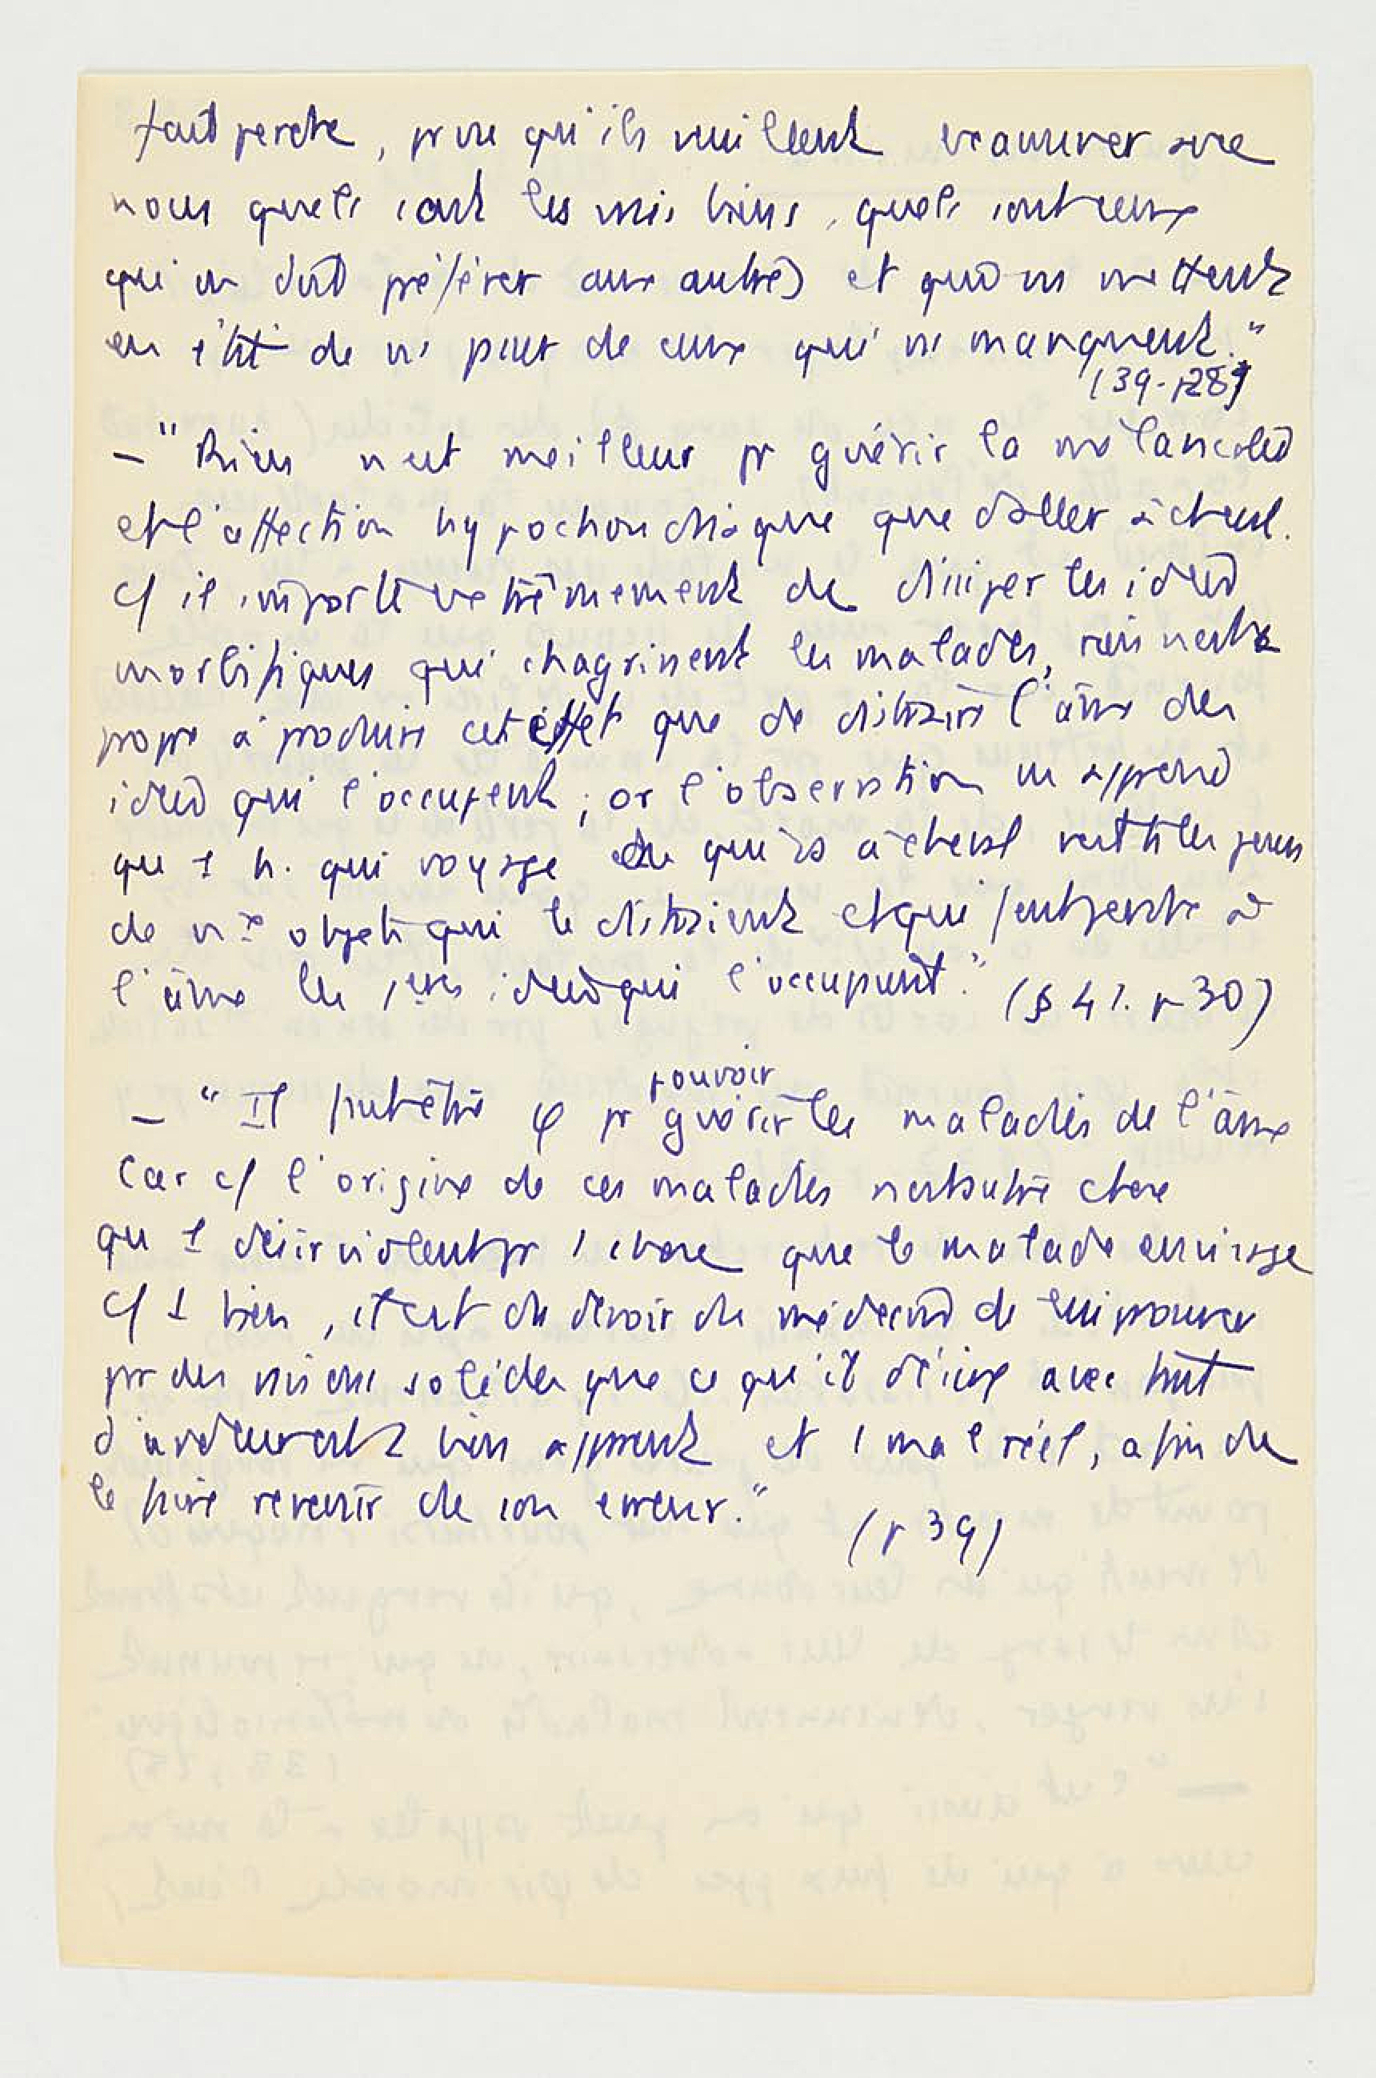 fait perdre, pr vu qu'ils veuillent examiner avec
nous quels sont les vrais biens, quels sont ceux
qu'on doit préférer aux autres et qu'on ns mettent
en état de ns priver de ceux qui ns manquent."
(39-p28)
– "Rien n'est meilleur pr guérir la mélancolie
et l'affection hypochondriaque que d'aller à cheval.
c/ il importe extrêmement de dissiper les idées
morbifiques qui chagrinent les malades, rien n'est
propre à produire cet effet que de distraire l'âme des
idées qui l'occupent ; or l'observation ns apprend
qu'1 h. qui voyage ou qui va à cheval rencontre
de nx objets qui le distraient et qui font perdre à
l'âme les 1ères idées qui l'occupaient." (§ 41. p 30)
– "Il faut être φ pr pouvoir guérir les maladies de l'âme
Car c/ l'origine de ces maladies n'est autre chose
qu'1 désir violent pr 1 chose que le malade envisage
c/ 1 bien, il est du devoir du médecin de lui prouver
pr des raisons solides que ce qu'il désire avec tant
d'ardeur est 1 bien apparent et 1 mal réel, afin de
le faire revenir de son erreur."
(p 39)